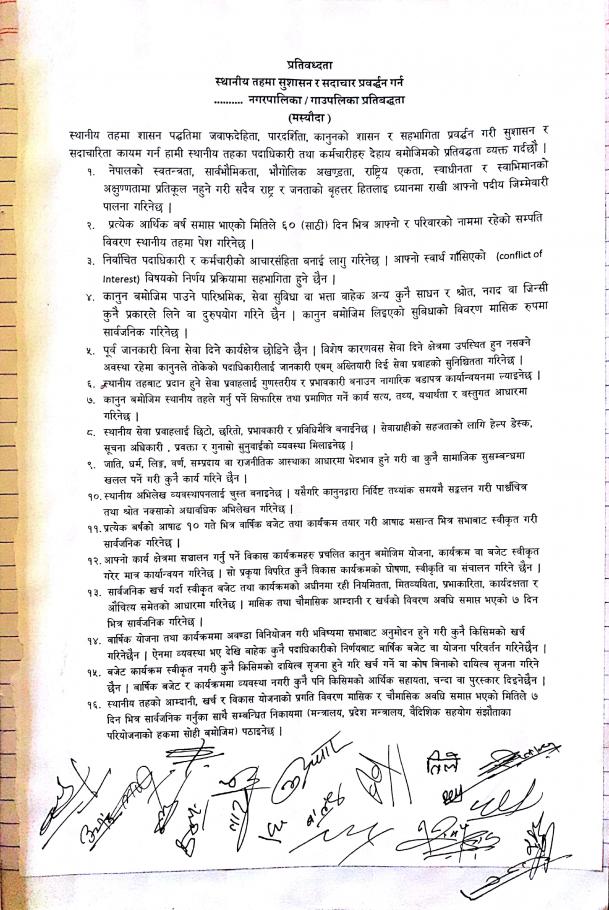 प्रतिवध्दता
स्थानीय तहमा सुशासन र सदाचार प्रवर्द्धन गर्न
.......... नगरपालिका / गाउपलिका प्रतिबद्धता
(मस्यौदा )
स्थानीय तहमा शासन पद्धतिमा जवाफदेहिता, पारदर्शिता, कानुनको शासन र सहभागिता प्रवर्द्धन गरी सुशासन र
सदाचारिता कायम गर्न हामी स्थानीय तहका पदाधिकारी तथा कर्मचारीहरु देहाय बमोजिमको प्रतिवद्धता व्यक्त गर्दछौ |
१. नेपालको स्वतन्त्रता, सार्वभौमिकता, भौगोलिक अखण्डता, राष्ट्रिय एकता, स्वाधीनता र स्वाभिमानको
अक्षुण्णतामा प्रतिकूल नहुने गरी सदैव राष्ट्र र जनताको बृहत्तर हितलाइ ध्यानमा राखी आफ्नो पदीय जिम्मेवारी
पालना गरिनेछ |
२. प्रत्येक आर्थिक बर्ष समाप्त भाएको मितिले ६० (साठी) दिन भित्र आफ्नो र परिवारको नाममा रहेको सम्पति
विवरण स्थानीय तहमा पेश गरिनेछ |
३. निर्वाचित पदाधिकारी र कर्मचारीको आचारसंहिता बनाई लागु गरिनेछ | आफ्नो स्वार्थ गाँसिएको (conflict of
Interest) विषयको निर्णय प्रक्रियामा सहभागिता हुने छैन |
४. कानुन बमोजिम पाउने पारिश्रमिक, सेवा सुविधा वा भत्ता बाहेक अन्य कुनै साधन र श्रोत, नगद वा जिन्सी
कुनै प्रकारले लिने वा दुरुपयोग गरिने छैन | कानुन बमोजिम लिइएको सुबिधाको विवरण मासिक रुपमा
सार्वजनिक गरिनेछ |
५. पूर्व जानकारी विना सेवा दिने कार्यक्षेत्र छोडिने छैन | विशेष कारणवस सेवा दिने क्षेत्रमा उपस्थित हुन नसक्ने
अवस्था रहेमा कानुनले तोकेको पदाधिकारीलाई जानकारी एबम् अख्तियारी दिई सेवा प्रवाहको सुनिश्चितता गरिनेछ |
६. स्थानीय तहबाट प्रदान हुने सेवा प्रवाहलाई गुणस्तरीय र प्रभावकारी बनाउन नागारिक बडापत्र कार्यान्वयनमा ल्याइनेछ |
७. कानुन बमोजिम स्थानीय तहले गर्नु पर्ने सिफारिस तथा प्रमाणित गर्ने कार्य सत्य, तथ्य, यथार्थता र वस्तुगत आधारमा
गरिनेछ |
८. स्थानीय सेवा प्रवाहलाई छिटो, छरितो, प्रभावकारी र प्रविधिमैत्रि बनाईनेछ | सेवाग्राहीको सहजताको लागि हेल्प डेस्क,
सूचना अधिकारी , प्रवक्ता र गुनासो सुनुवाईको व्यवस्था मिलाइनेछ |
९. जाति, धर्म, लिङ्ग, वर्ण, सम्प्रदाय वा राजनीतिक आस्थाका आधारमा भेदभाव हुने गरी वा कुनै सामाजिक सुसम्बन्धमा
खलल पर्ने गरी कुनै कार्य गरिने छैन |
१०. स्थानीय अभिलेख व्यवस्थापनलाई चुस्त बनाइनेछ | यसैगरि कानुनद्वारा निर्दिष्ट तथ्यांक समयमै सङ्कलन गरी पार्श्वचित्र
तथा श्रोत नक्साको अद्यावधिक अभिलेखन गरिनेछ |
११. प्रत्येक बर्षको आषाढ १० गते भित्र वार्षिक बजेट तथा कार्यक्रम तयार गरी आषाढ मसान्त भित्र सभाबाट स्वीकृत गरी
सार्वजनिक गरिनेछ |
१२. आफ्नो कार्य क्षेत्रमा सञ्चालन गर्नु पर्ने विकास कार्यक्रमहरु प्रचलित कानुन बमोजिम योजना, कार्यक्रम वा बजेट स्वीकृत
गरेर मात्र कार्यान्वयन गरिनेछ | सो प्रकृया विपरित कुनै विकास कार्यक्रमको घोषणा, स्वीकृति वा संचालन गरिने छैन |
१३. सार्वजनिक खर्च गर्दा स्वीकृत बजेट तथा कार्यक्रमको अधीनमा रही नियमितता, मितव्ययिता, प्रभाकारिता, कार्यदक्षता र
औचित्य समेतको आधारमा गरिनेछ | मासिक तथा चौमासिक आम्दानी र खर्चको विवरण अवधि समाप्त भएको ७ दिन
भित्र सार्वजनिक गरिनेछ |
१४. बार्षिक योजना तथा कार्यक्रममा अवण्डा विनियोजन गरी भविष्यमा सभाबाट अनुमोदन हुने गरी कुनै किसिमको खर्च
गरिनेछैन | ऐनमा व्यवस्था भए देखि बाहेक कुनै पदाधिकारीको निर्णयबाट बार्षिक बजेट वा योजना परिवर्तन गरिनेछैन |
१५. बजेट कार्यक्रम स्वीकृत नगरी कुनै किसिमको दायित्व सृजना हुने गरि खर्च गर्ने वा कोष बिनाको दायित्व सृजना गरिने
छैन | बार्षिक बजेट र कार्यक्रममा व्यवस्था नगरी कुनै पनि किसिमको आर्थिक सहायता, चन्दा वा पुरस्कार दिइनेछैन |
१६. स्थानीय तहको आम्दानी, खर्च र विकास योजनाको प्रगति विवरण मासिक र चौमासिक अवधि समाप्त भएको मितिले ७
दिन भित्र सार्वजनिक गर्नुका साथै सम्बन्धित निकायमा (मन्त्रालय, प्रदेश मन्त्रालय, बैदेशिक सहयोग संझौताका
परियोजनाको हकमा सोही बमोजिम) पठाइनेछ |